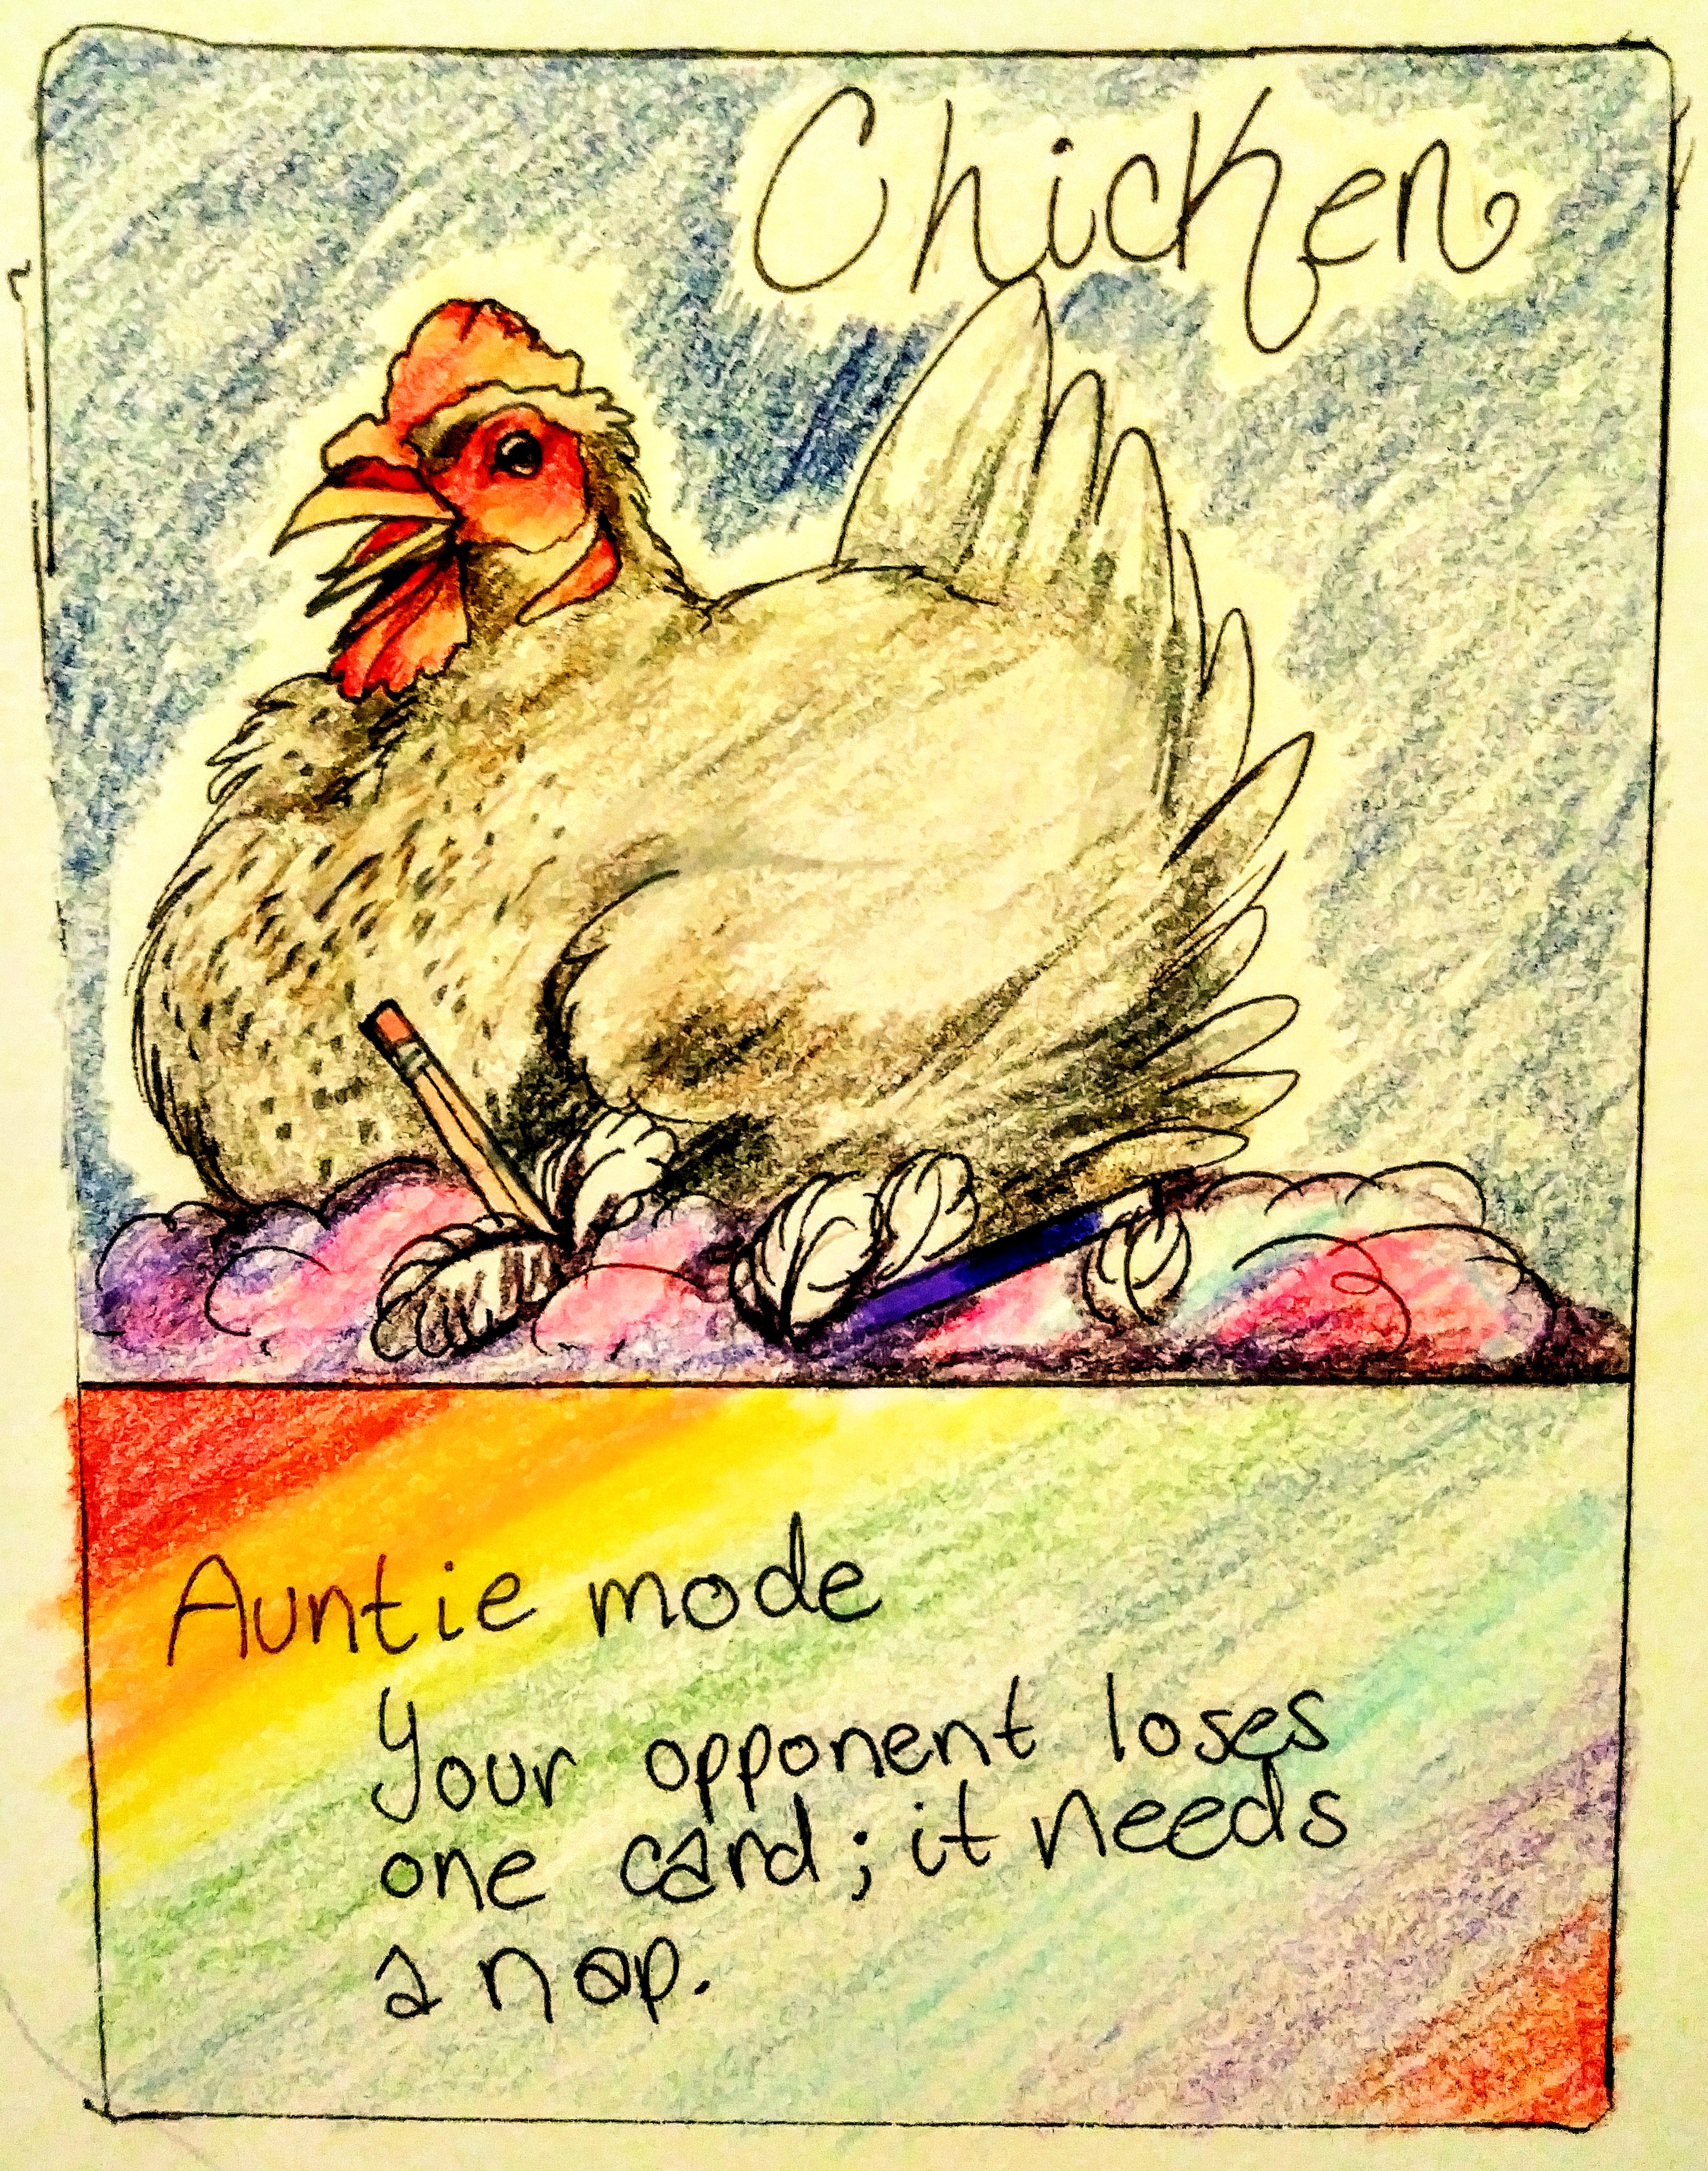 Chicken
Auntie mode
Your opponent loses
one card; it needs
a nap.